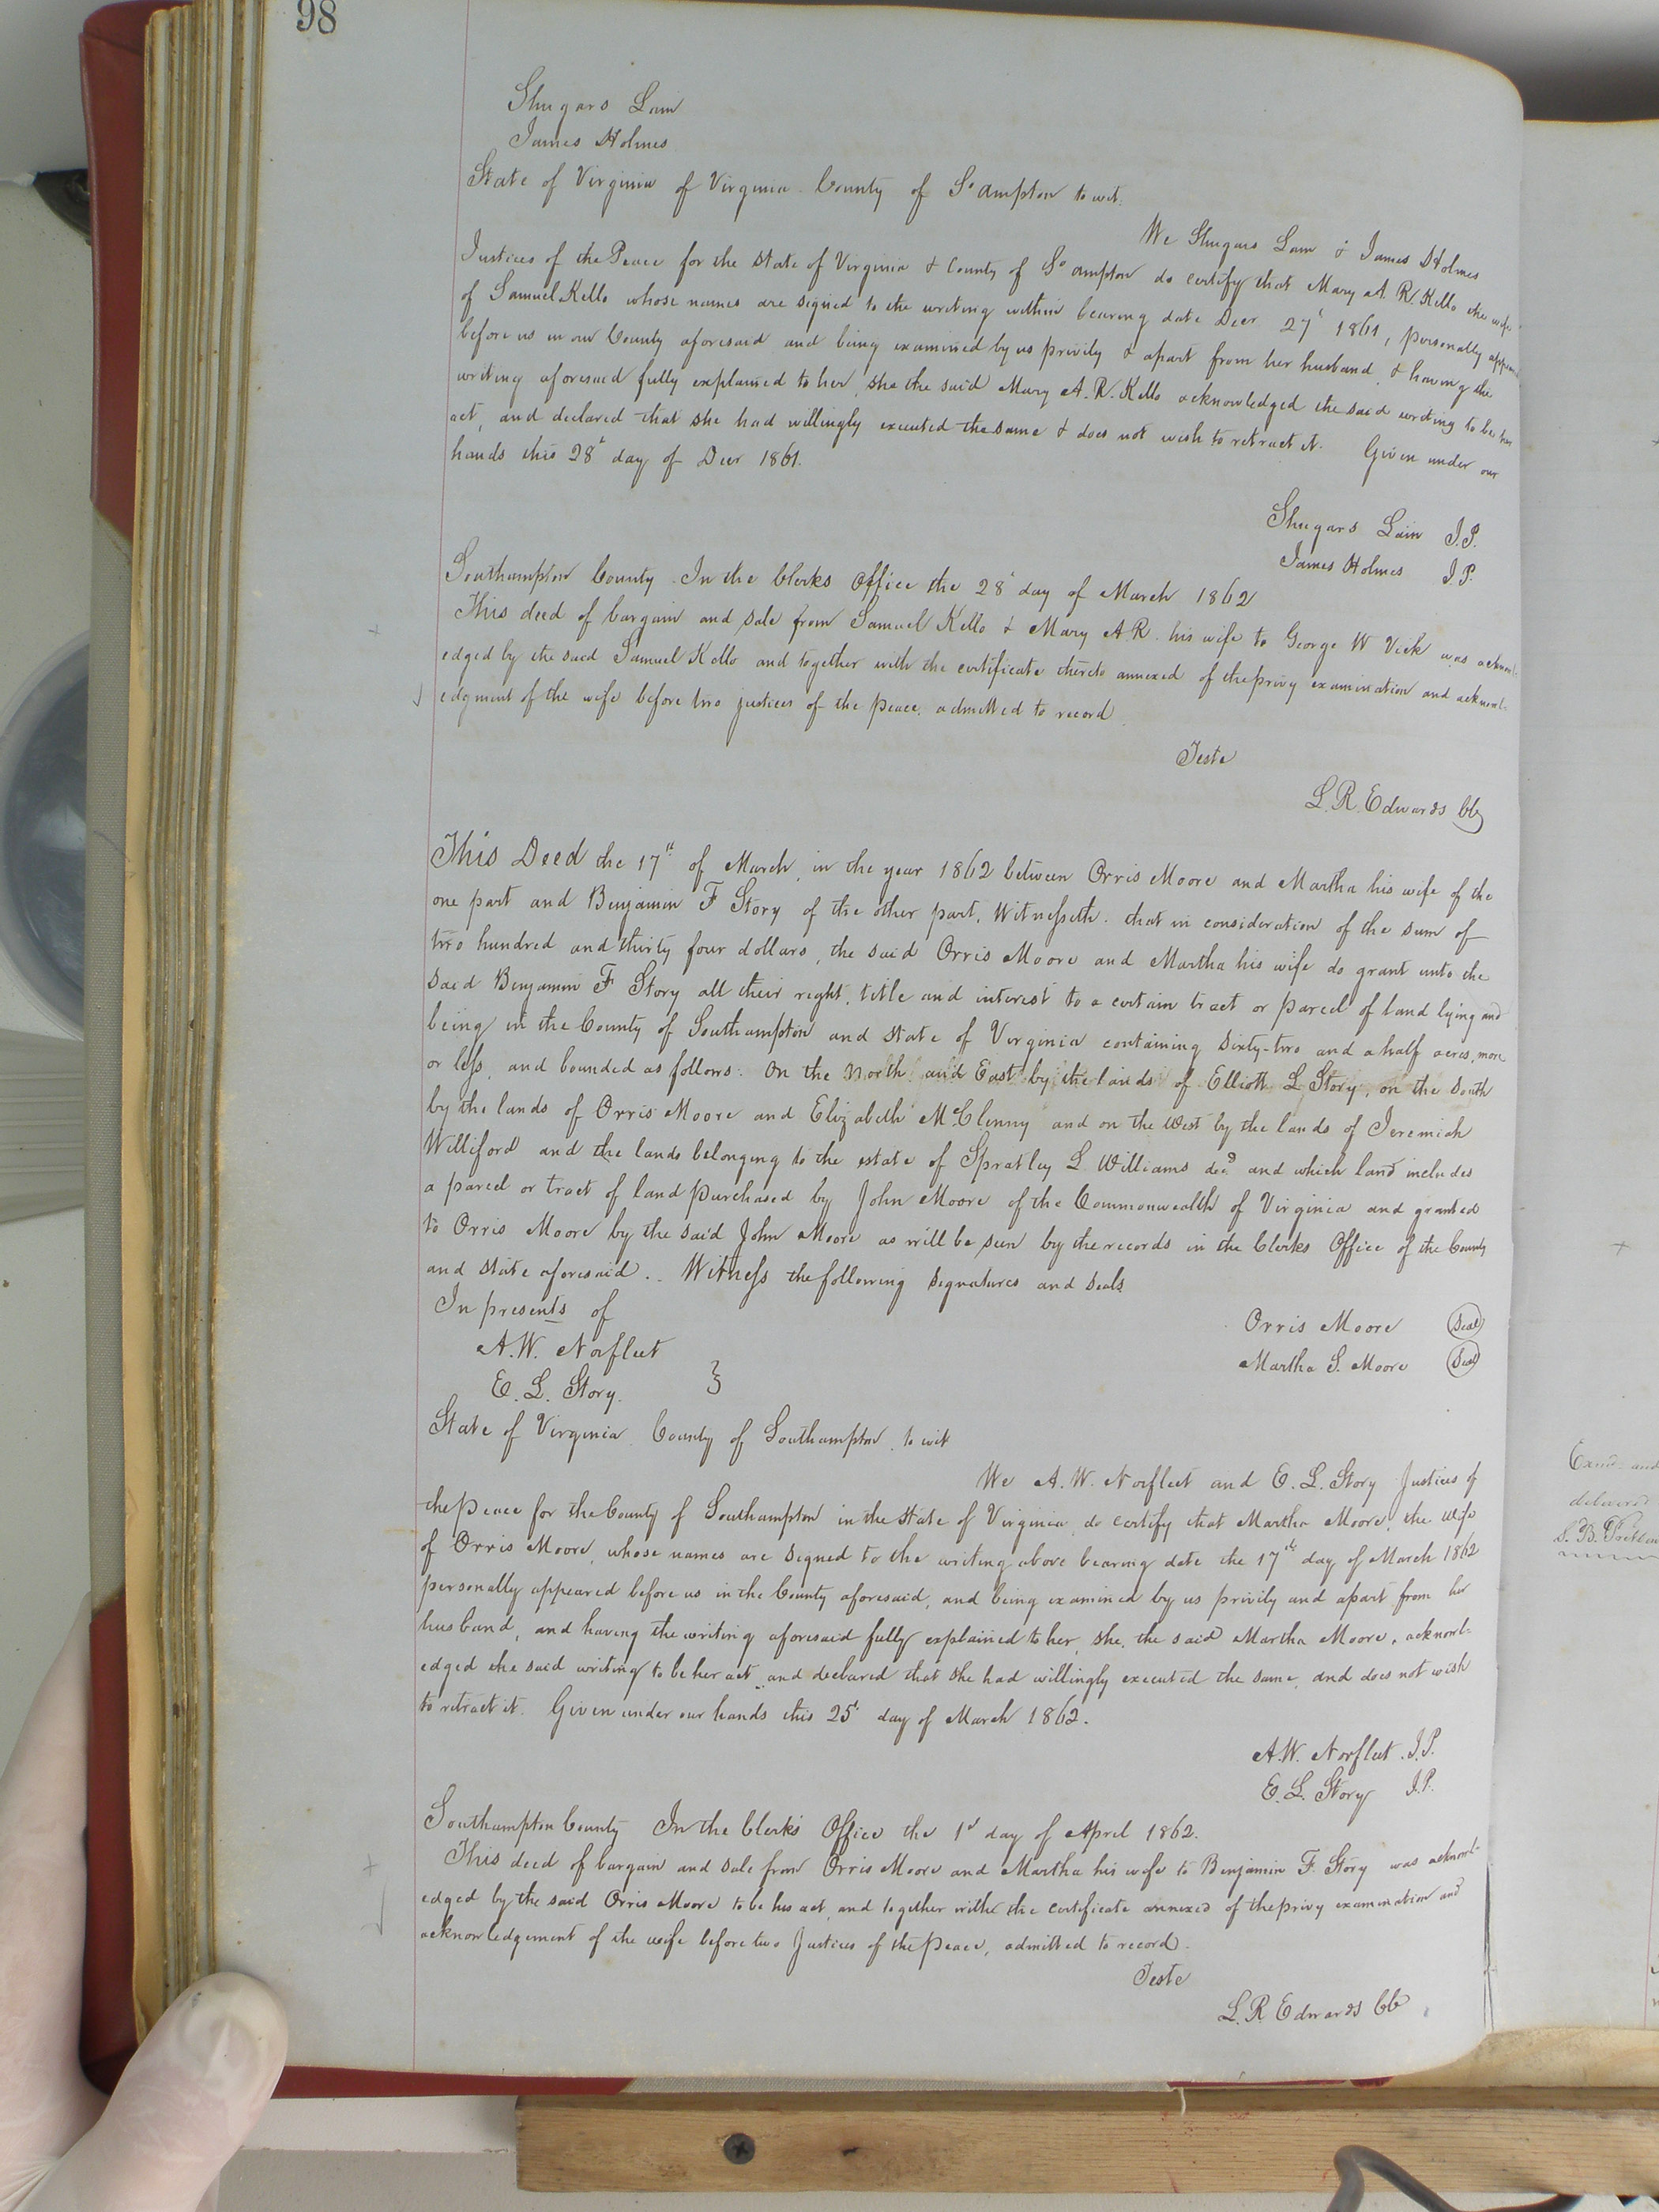 98
Shugars Lain
James Holmes
State of Virginia of Virginia County of So ampton to wit.
We Shugars Lain & James Holmes
Justices of the Peace for the State of Virginia & County of So ampton do certify that Mary A. R. Kello the wife
of Samuel Kello whose names are signed to the writing within bearing date Decr 27t 1861, personally
before us in our County aforesaid and being examined by us privily & apart from her husband & having the
writing aforesaid fully explained to her, she the said Mary A. R. Kello acknowledged the said writing to be her
act, and declared that she had willingly executed the same & does not wish to retract it. Given under our
hands this 28t day of Decr 1861.
Shugars Lain J.P.
James Holmes J.P.
Southampton County In the Clerks Office the 28t day of March 1862
This deed of bargain and sale from Samuel Kello & Mary A R. his wife to George W Vick was acknowl-
edged by the said Samuel Kello and together with the certificate thereto annexed of the privy examination and acknowl-
edgment of the wife before two justices of the peace. admitted to record
Teste
L. R. Edwards Clk
This Deed the 17th of March, in the year 1862 between Orris Moore and Martha his wife of the
one part and Benjamin F Story of the other part, Witnesseth. that in consideration of the sum of
two hundred and thirty four dollars, the said Orris Moore and Martha his wife do grant unto the
said Benjamin F Story all their right, title and interest to a certain tract or parcel of land lying and
being in the County of Southampton and State of Virginia containing sixty-two and a half acres, more
or less, and bounded as follows. On the North and East by the lands of Elliott L Story, on the South
by the lands of Orris Moore and Elizabeth McClenny and on the West by the lands of Jeremiah
Williford and the lands belonging to the estate of Spratley L Williams decd and which land includes
a parcel or tract of land purchased by John Moore of the Commonwealth of Virginia and granted
to Orris Moore by the said John Moore as will be seen by the records in the Clerks Office of the County
and State aforesaid. Witness the following signatures and seals
In presents of
Orris Moore Seal
A.W. Norfleet
Martha S. Moore Seal
E. L. Story.
State of Virginia County of Southampton, to wit
We A.W. Norfleet and E. L. Story Justices of
the Peace for the County of Southampton in the State of Virginia, do certify that Martha Moore, the wife
of Orris Moore, whose names are signed to the writing above bearing date the 17th day of March 1862
personally appeared before us in the County aforesaid, and being examined by us privily and apart from her
husband, and having the writing aforesaid fully explained to her, she, the said Martha Moore, acknowl-
edged the said writing to be her act, and declared that she had willingly executed the same, and does not wish
to retract it. Given under our hands this 25t day of March 1862.
A.W. Norfleet. J.P.
E. L. Story J.P.
Southampton County In the Clerks Office the 1st day of April 1862.
This deed of bargain and sale from Orris Moore and Martha his wife to Benjamin F. Story was acknowl-
edged by the said Orris Moore to be his act, and together with the certificate annexed of the privy examination and
acknowledgement of the wife before two Justices of the peace, admitted to record.
Teste
L. R. Edwards Clk